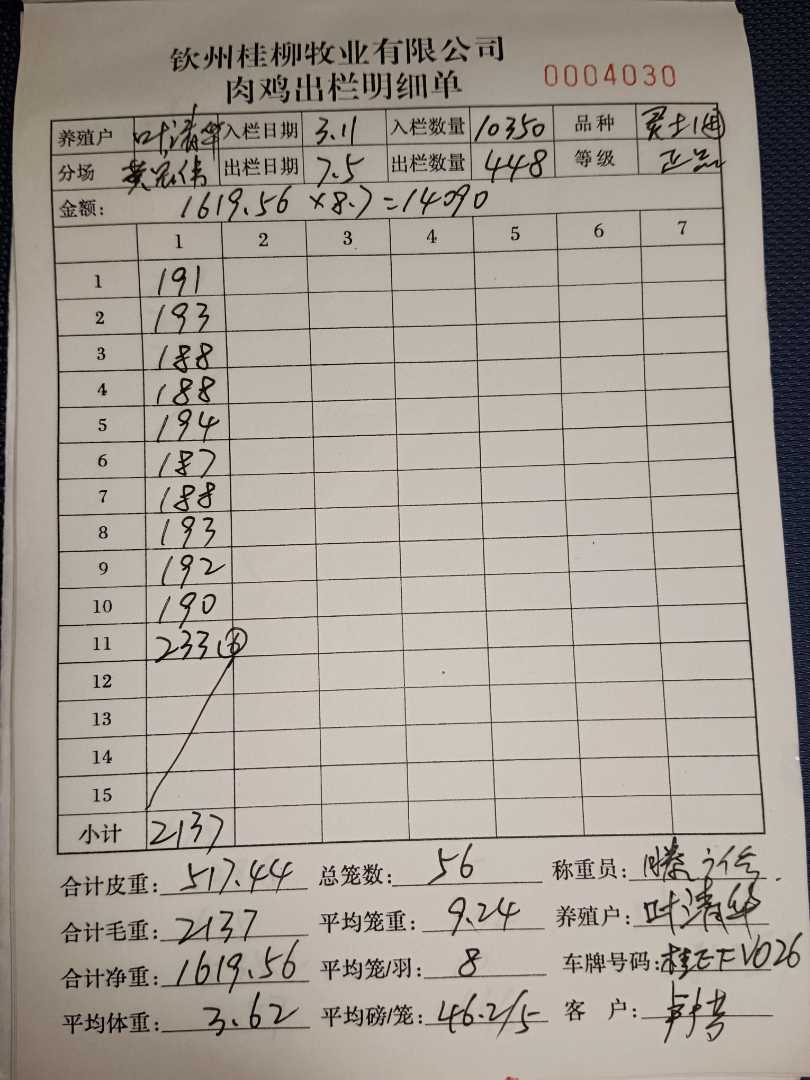 钦州桂柳牧业有限公司
肉鸡出栏明细单 0004030
养殖户 叶清华 入栏日期 3.11 入栏数量 10350 品种
分场 出栏日期 7.5 出栏数量 448 等级 正品
金额: 1619.56 × 8.7 = 14090
1 2 3 4 5 6 7
1 191
2 193
3 188
4 188
5 194
6 187
7 188
8 193
9 192
10 190
11 233 ⑥
12
13
14
15
小计 2137
合计皮重: 517.44 总笼数: 56 称重员:
合计毛重: 2137 平均笼重: 9.24 养殖户: 叶清华
合计净重: 1619.56 平均笼/羽: 8 车牌号码:
平均体重: 3.62 平均磅/笼: 46.2/5 客 户: